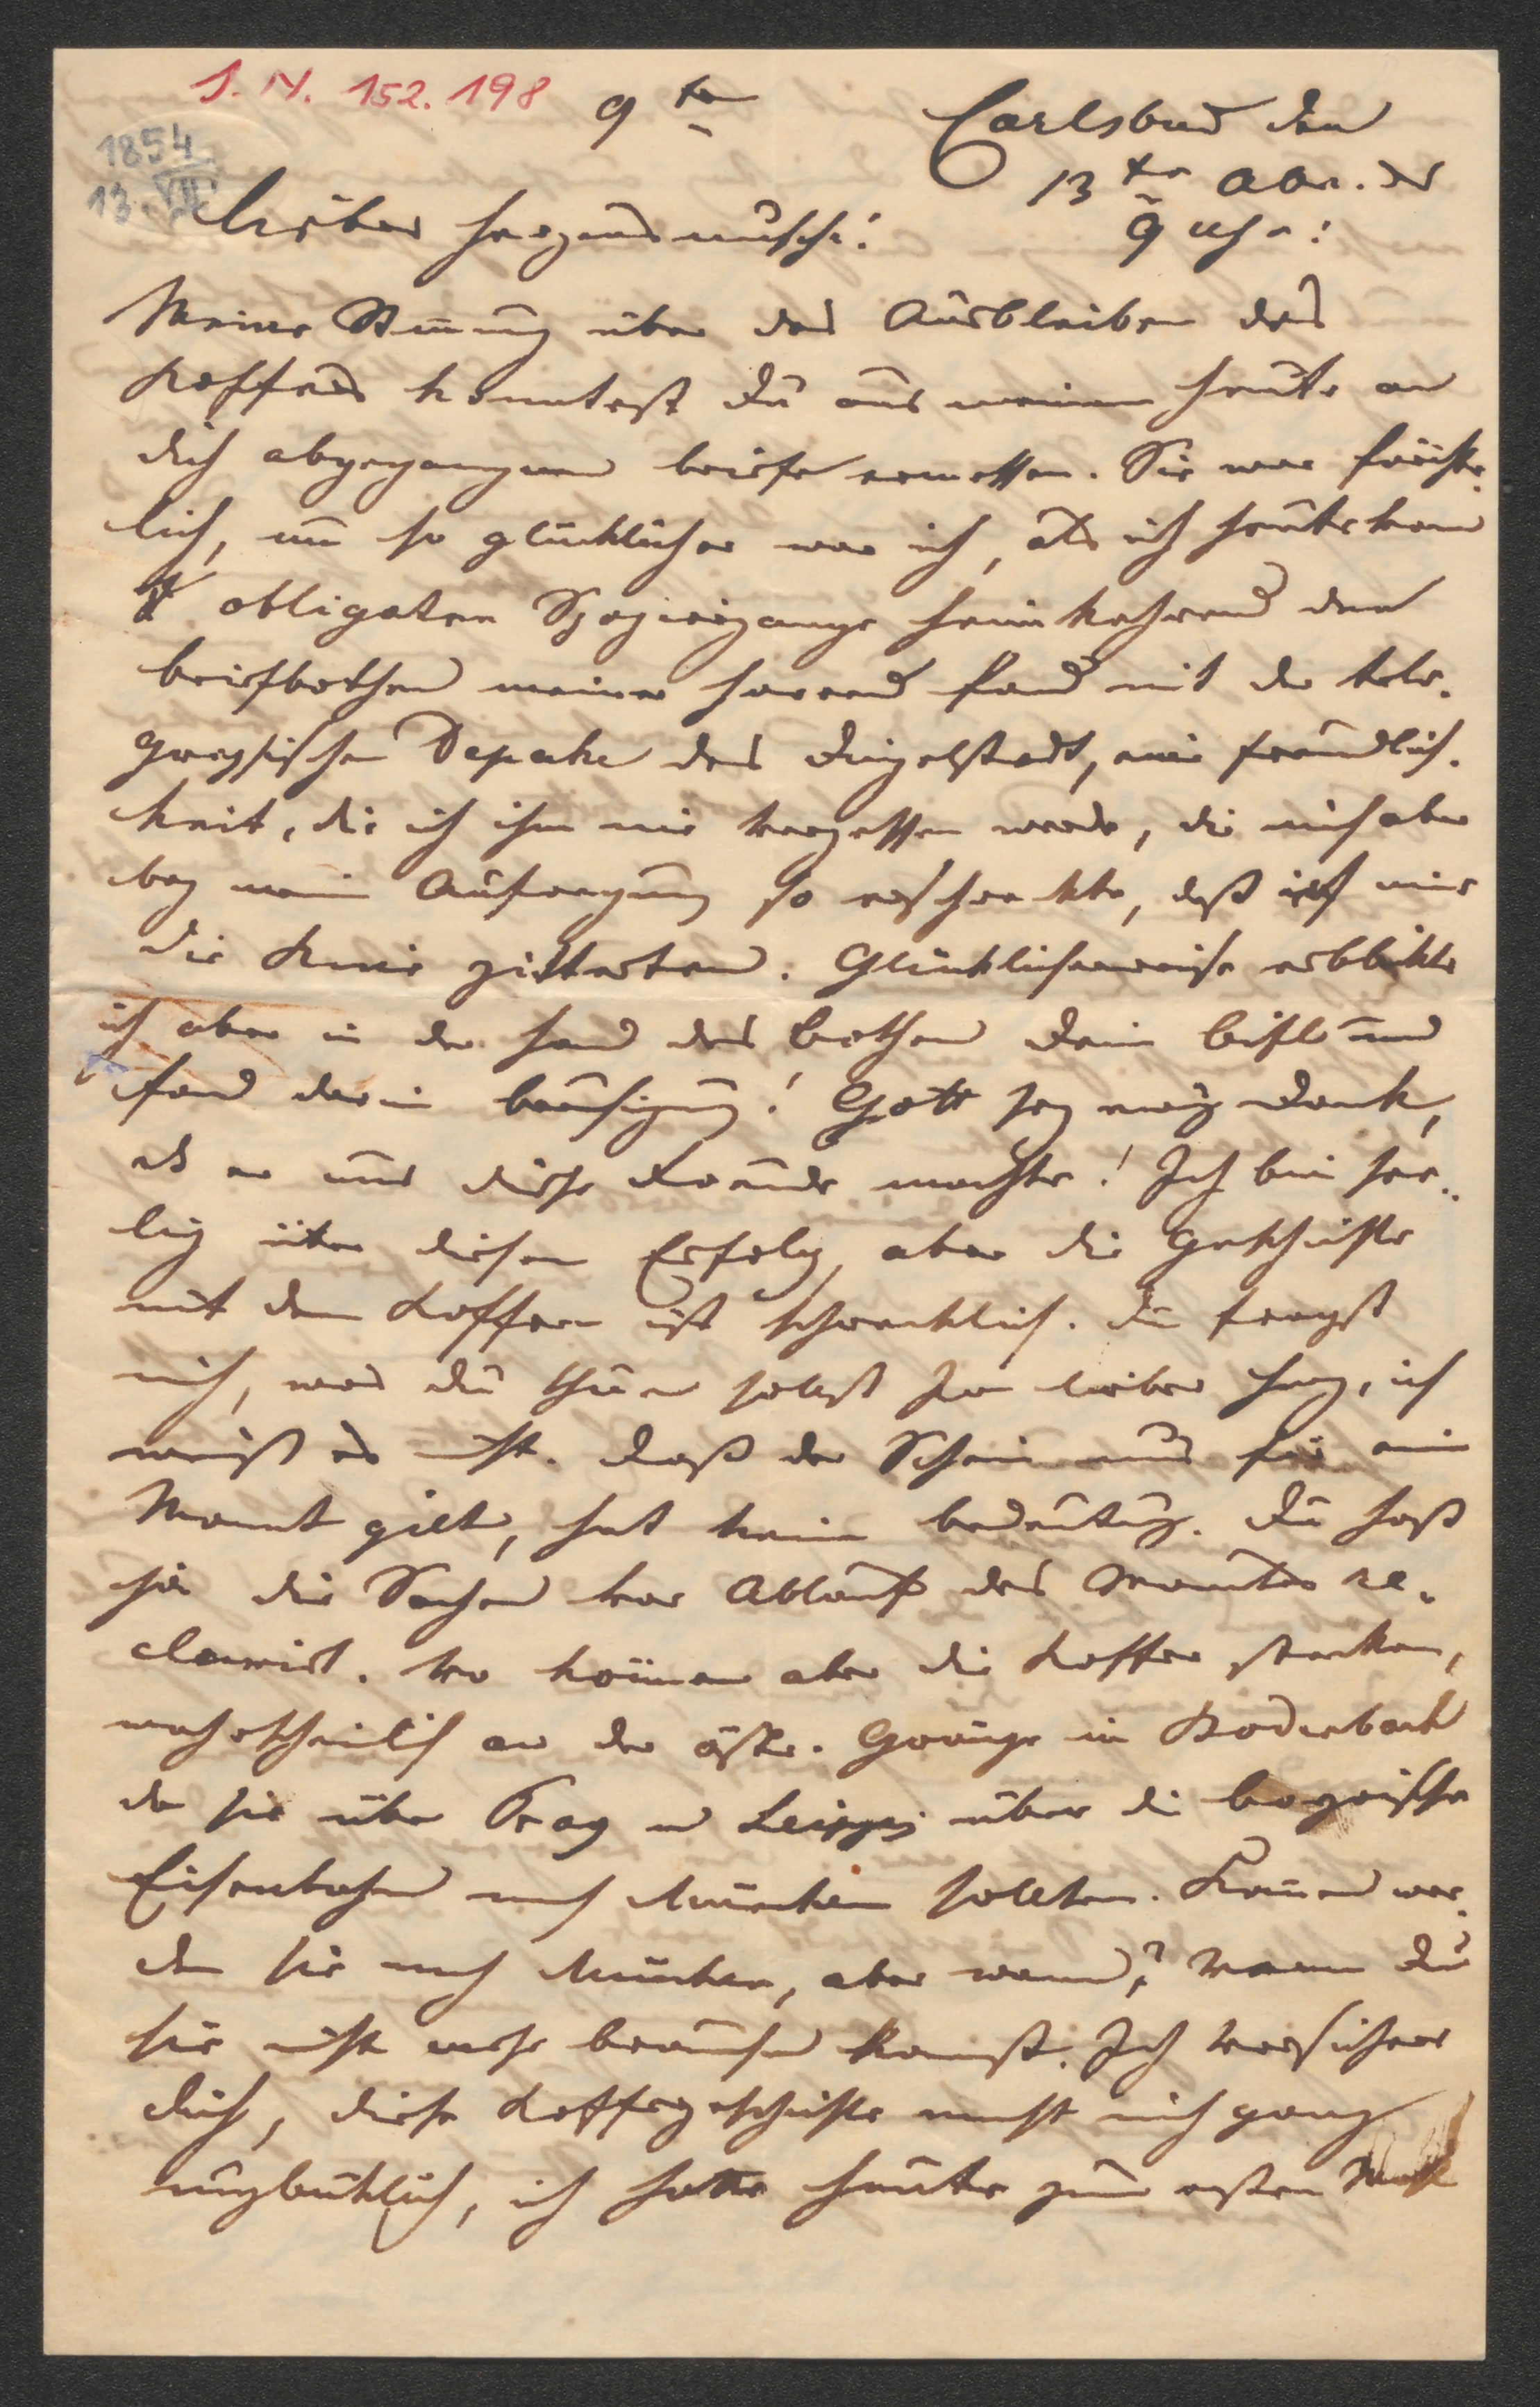 I. N. 152.198
1854
13. VII
9te
Carlsbad den
13te Abends
9 Uhr:
Lieber Herzensmensch!
Meine Stimmung über das Ausbleiben des
Koffers konntest Du aus meinem heute an
dich abgegangenen briefe ermessen. Sie war fürchter-
lich, um so glücklicher war ich, als ich heute vom
obligaten Spaziergange heimkehrend den
briefbothen meiner harrend fand mit der tele-
graphischen Depeche des Dingelstedt, eine freundlich-
keit, die ich ihm nie vergessen werde, die mich aber
bey meiner Aufregung so erschreckte, daß mir
die Knie zitterten. Glücklicherweise erblickte
ich aber in der Hand des bothen Dein und
fand darin beruhigung! Gott sey ewig Dank,
daß er uns diese Freude machte! Ich bin see-
lig über diesen Erfolg, aber die Geschichte
mit den Koffern ist schrecklich. Du fragst
mich, was Du thun sollst Ja lieber Herz, ich
weiß es nicht. Daß der Schein nur für ein
Monat gilt, hat keine bedeutung. Du hast
ja die Sachen vor Ablauf des Monates re-
clamirt. Wo können aber die Koffer stecken,
wahrscheinlich an der östr. Gränze in Bodenbach
da sie über Prag u Leipzig über die bayrische
Eisenbahn nach München sollten. Kommen wer-
den sie nach München, aber wann? Wenn Du
sie nicht mehr brauchen kannst. Ich versichere
dich, diese Koffergeschichte macht mich ganz
unglücklich, ich hatte heute zum ersten Mahl